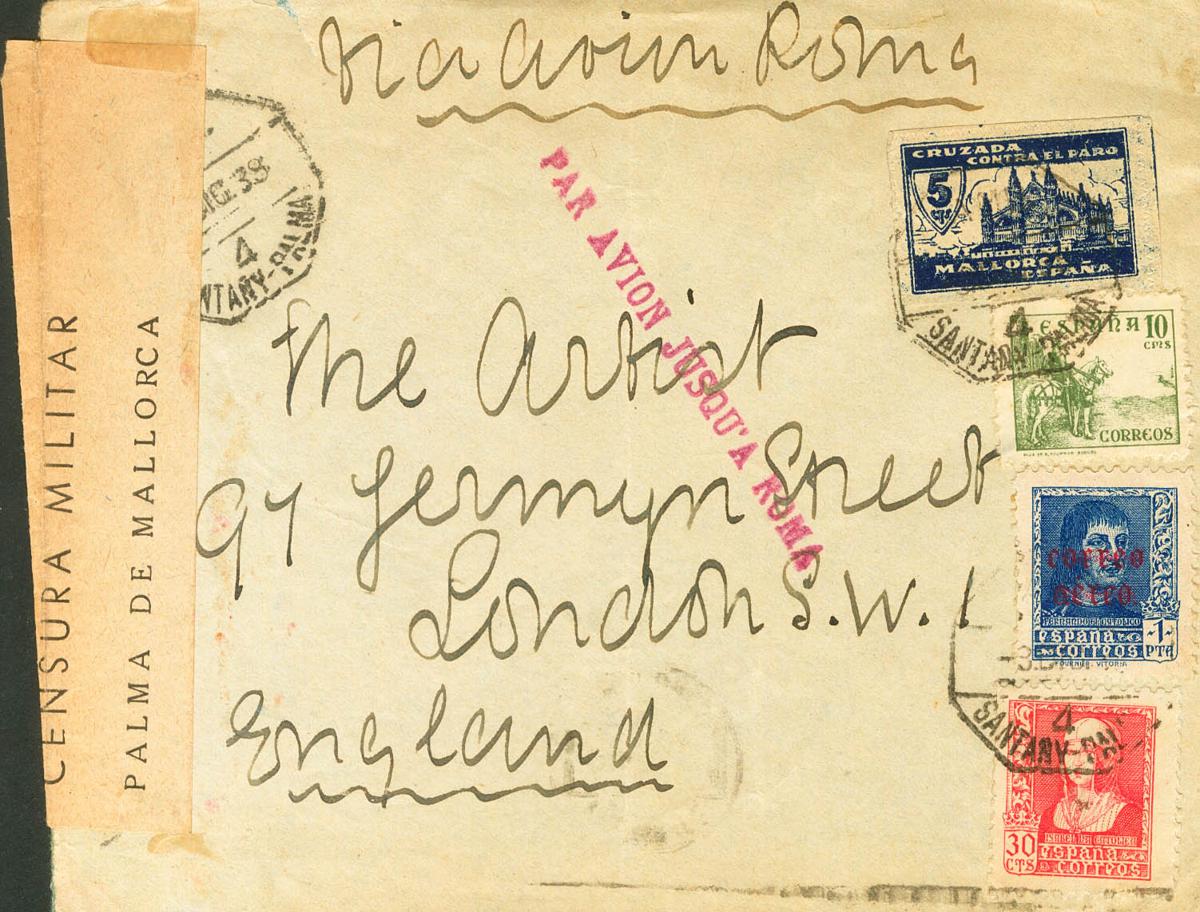 Via avion Roma
PAR AVION JUSQU'A ROMA
The Artist
97 Jermyn Street
London S.W.1
England
CENSURA MILITAR
PALMA DE MALLORCA
38
4
NTAÑY-PALMA
CRUZADA
CONTRA EL PARO
5
CTS
MALLORCA
ESPAÑA
4
SANTANY-PALMA
ESPAÑA 10
CMS
CORREOS
correo
aereo
FERNANDO EL CATOLICO
españa
correos
1
PTA
FOURNIER. VITORIA
4
SANTANY-PAL
ISABEL LA CATOLICA
30
CTS
españa
correos